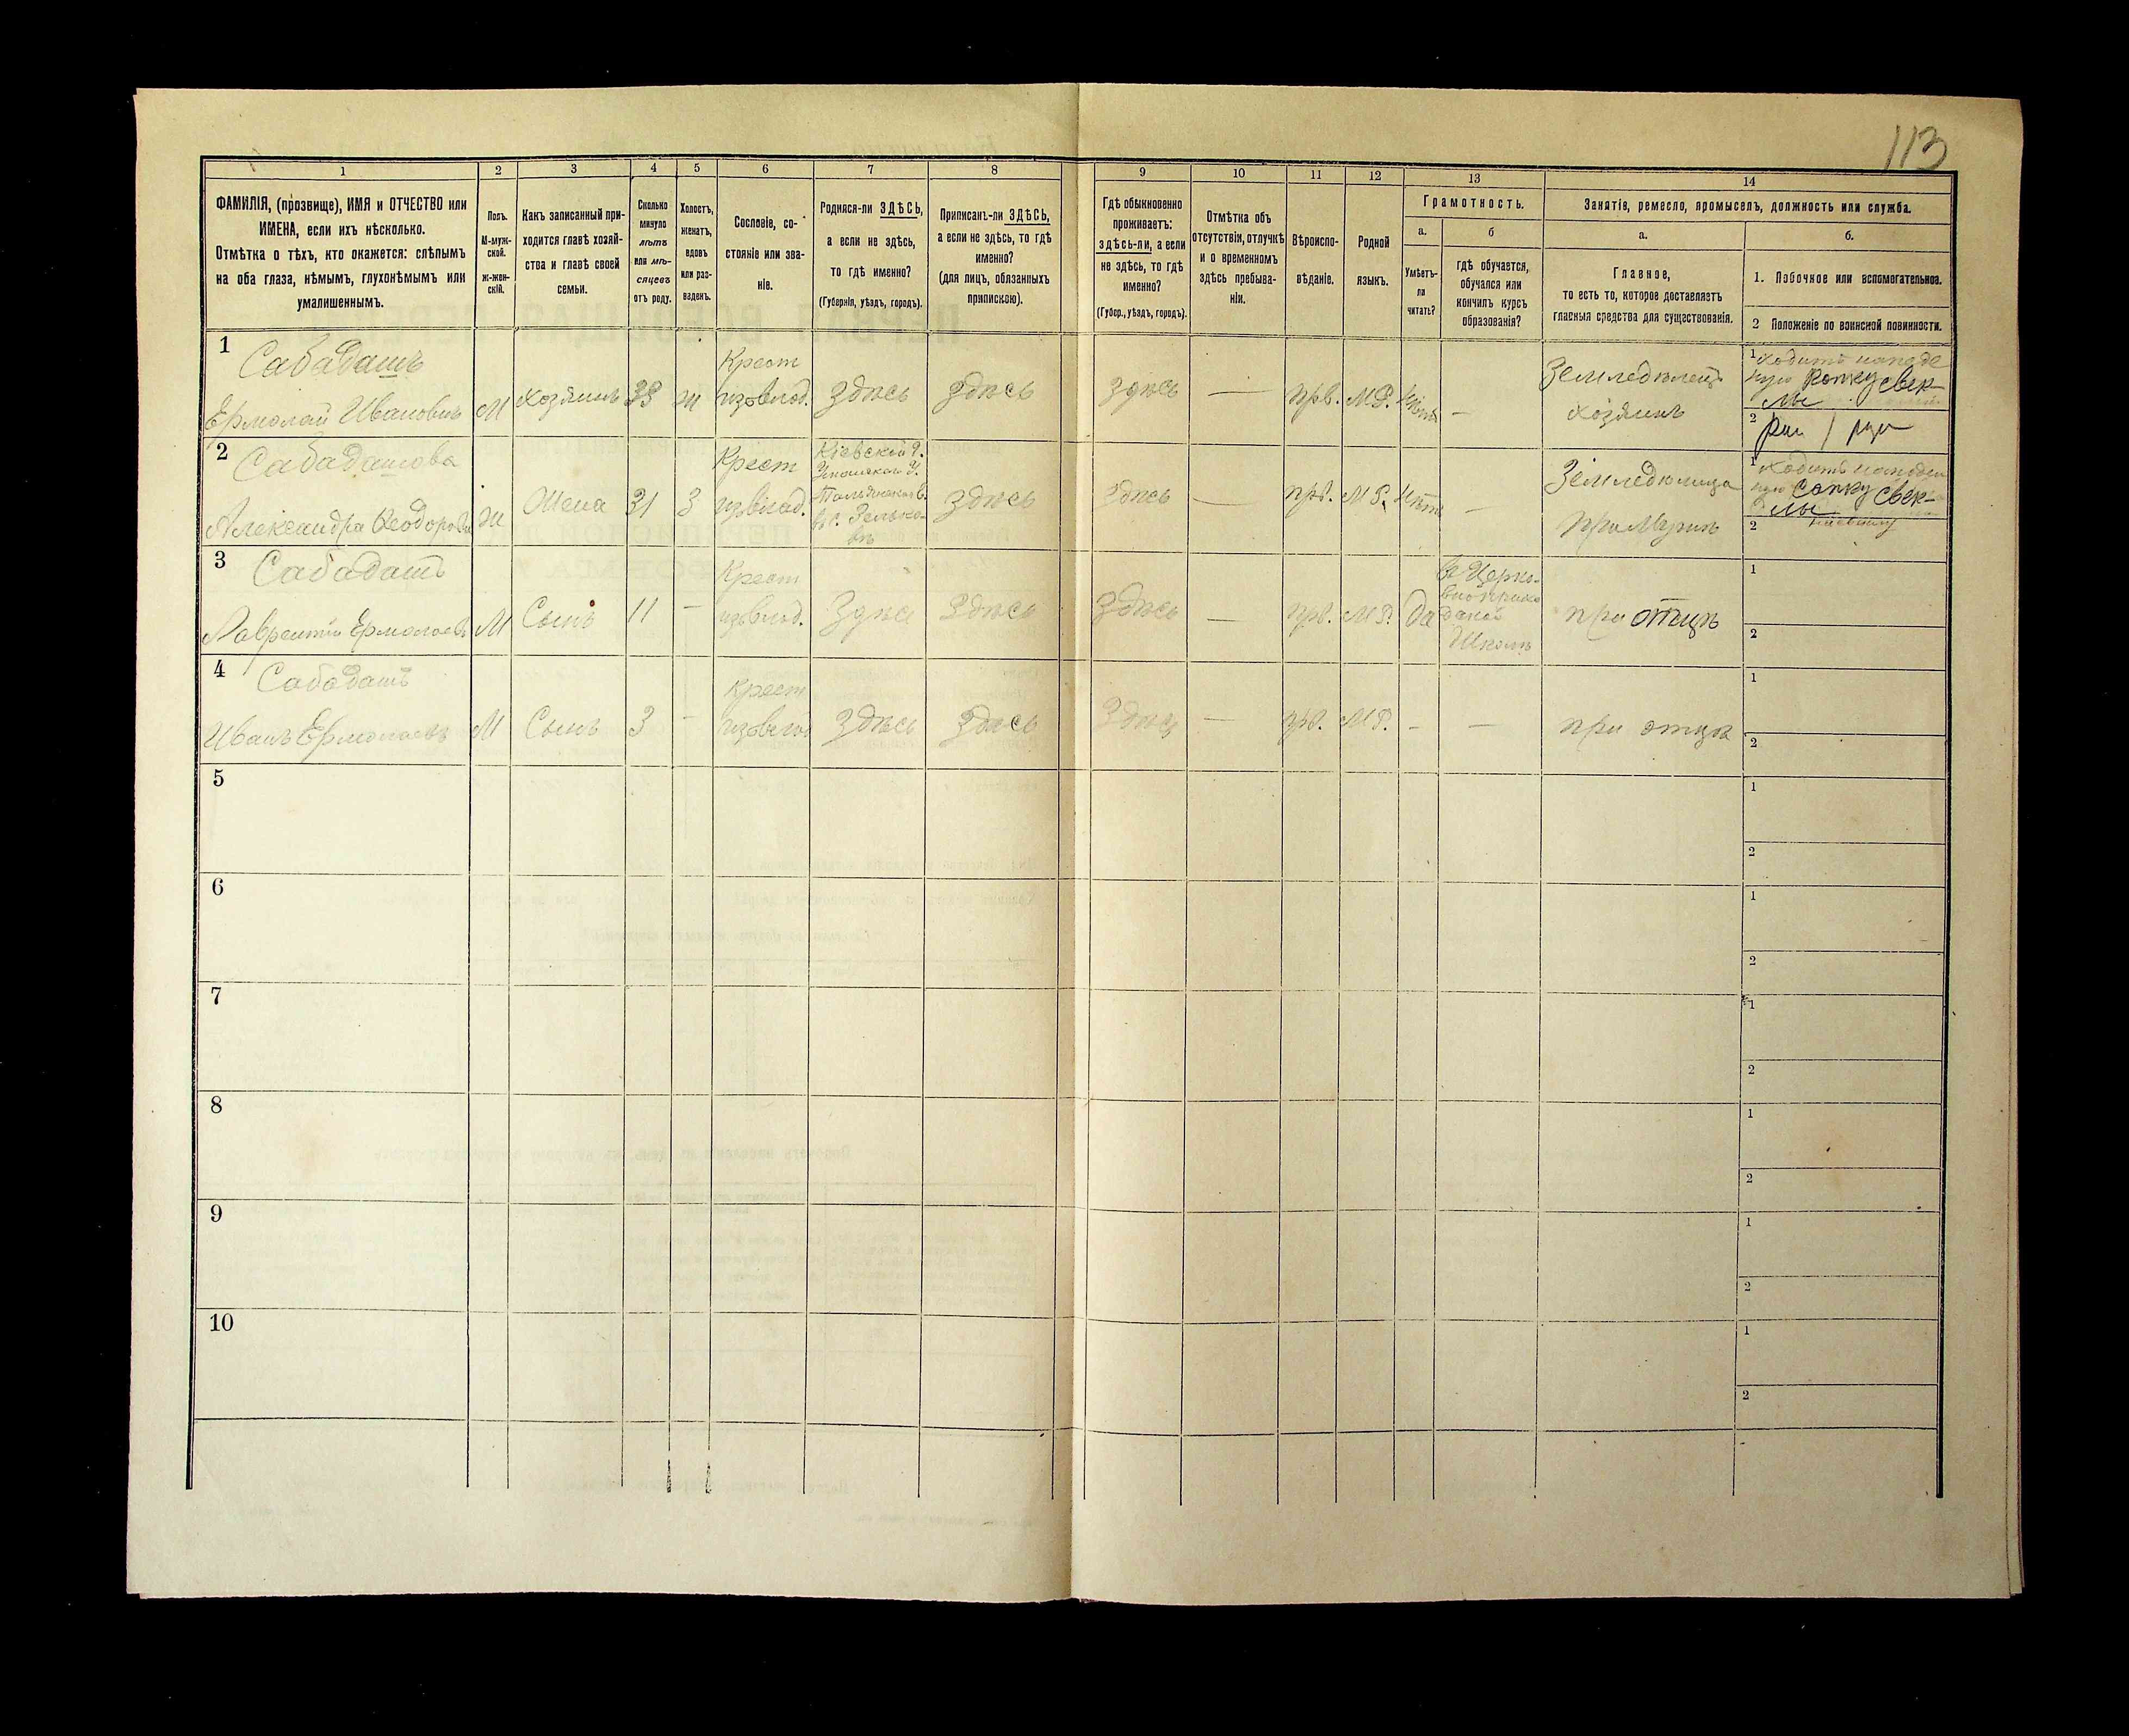 113
1
2
3
4
5
6
7
8
9
10
11
12
13
14
ФАМИЛІЯ, (прозвище), ИМЯ и ОТЧЕСТВО или
ИМЕНА, если ихъ нѣсколько.
Отмѣтка о тѣхъ, кто окажется: слѣпымъ
на оба глаза, нѣмымъ, глухонѣмымъ или
умалишеннымъ.
Полъ.
М-муж-
ской.
ж-жен-
скій.
Какъ записанный при-
ходится главѣ хозяй-
ства и главѣ своей
семьи.
Сколько
минуло
лѣтъ
или мѣ-
сяцевъ
отъ роду.
Холостъ,
женатъ,
вдовъ
или раз-
веденъ.
Сословіе, со-
стояніе или зва-
ніе.
Родился-ли ЗДѢСЬ,
а если не здѣсь,
то гдѣ именно?
(Губернія, уѣздъ, городъ).
Приписанъ-ли ЗДѢСЬ,
а если не здѣсь, то гдѣ
именно?
(для лицъ, обязанныхъ
припискою).
Гдѣ обыкновенно
проживаетъ:
здѣсь-ли, а если
не здѣсь, то гдѣ
именно?
(Губер., уѣздъ, городъ).
Отмѣтка объ
отсутствіи, отлучкѣ
и о временномъ
здѣсь пребыва-
ніи.
Вѣроиспо-
вѣданіе.
Родной
языкъ.
Грамотность.
а.
Умѣетъ-
ли
читать?
б
гдѣ обучается,
обучался или
кончилъ курсъ
образованія?
Занятія, ремесло, промыселъ, должность или служба.
а.
Главное,
то есть то, которое доставляетъ
главныя средства для существованія.
б.
1. Побочное или вспомогательное.
2 Положеніе по воинской повинности.
1
Сабадашъ
Ермолай Ивановъ
М
Хозяинъ
33
ж
Крест
изъвлад.
Здѣсь
Здѣсь
Здѣсь
—
прв.
М.Р.
Нѣтъ
—
Земледѣлецъ
хозяинъ
1
свек-
лы
2
2
Сабадашова
Александра Ѳеодорова
ж
Жена
31
З
Крест
изъвлад.
Кіевской Г.
Уманскаго У.
Тальянской в.
Здѣсь
Здѣсь
—
прв.
М.Р.
Нѣтъ
—
Земледѣлица
при Мужѣ
1
сапку свек-
лы
2
3
Сабадашъ
Лаврентій Ермолаевъ
М
Сынъ
11
—
Крест
изъвлад.
Здѣсь
Здѣсь
Здѣсь
—
прв.
М.Р.
Да
въ Церко-
вноприхо
дской
Школѣ
при отцѣ
1
2
4
Сабадашъ
Иванъ Ермолаевъ
М
Сынъ
3
—
Крест
изъвлад
Здѣсь
Здѣсь
Здѣсь
—
прв.
М.Р.
—
—
при отцѣ
1
2
5
1
2
6
1
2
7
1
2
8
1
2
9
1
2
10
1
2